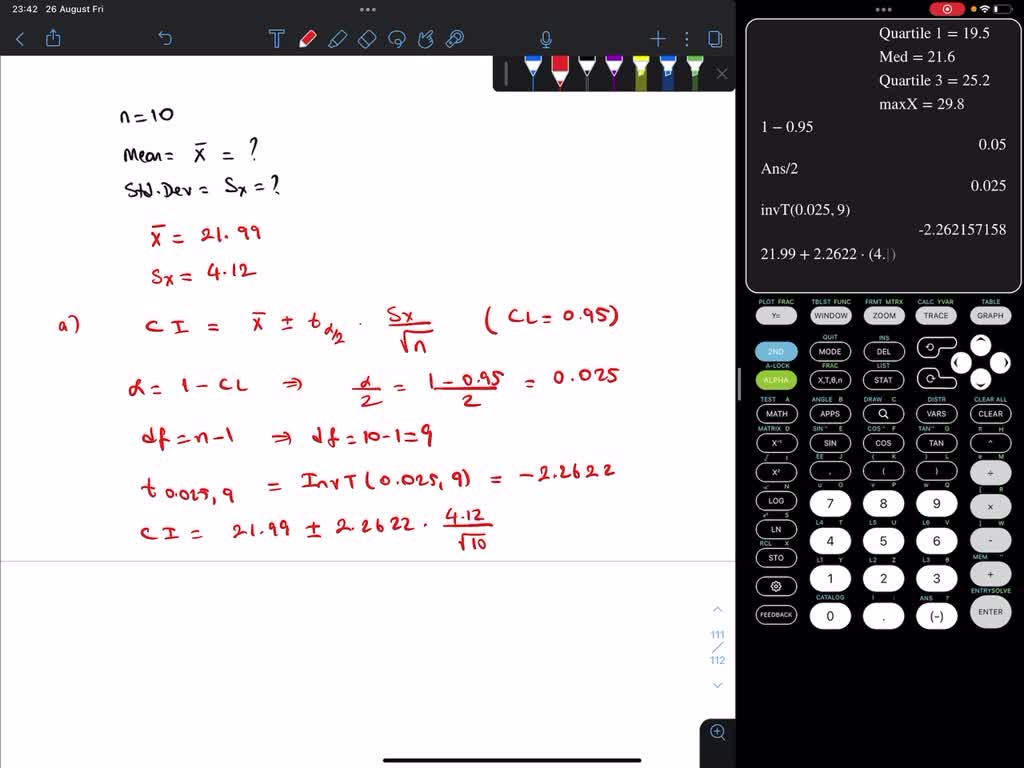 23:42 26 August Fri
n=10
Mean = x̄ = ?
Std.Dev = Sx = ?
x̄ = 21.99
Sx = 4.12
a) CI = x̄ ± t α/2 · Sx/√n (CL = 0.95)
α = 1 - CL ⇒ α/2 = (1 - 0.95)/2 = 0.025
df = n-1 ⇒ df = 10-1 = 9
t 0.025, 9 = InvT(0.025, 9) = -2.2622
CI = 21.99 ± 2.2622 · 4.12/√10
111
/
112
Quartile 1 = 19.5
Med = 21.6
Quartile 3 = 25.2
maxX = 29.8
1 − 0.95
0.05
Ans/2
0.025
invT(0.025, 9)
-2.262157158
21.99 + 2.2622 · (4.)
PLOT FRAC TBLST FUNC FRMT MTRX CALC YVAR TABLE
Y= WINDOW ZOOM TRACE GRAPH
QUIT INS
2ND MODE DEL
A-LOCK FRAC LIST
ALPHA X,T,θ,n STAT
TEST A ANGLE B DRAW C DISTR CLEAR ALL
MATH APPS VARS CLEAR
MATRIX D SIN⁻¹ E COS⁻¹ F TAN⁻¹ G π H
X⁻¹ SIN COS TAN ^
EE J { K } L e M
X² , ( ) ÷
LOG 7 8 9 ×
L4 T L5 U L6 V ] W
LN 4 5 6 -
RCL X L1 Y L2 Z L3 θ MEM "
STO 1 2 3 +
CATALOG i : ANS ? ENTRYSOLVE
FEEDBACK 0 . (-) ENTER